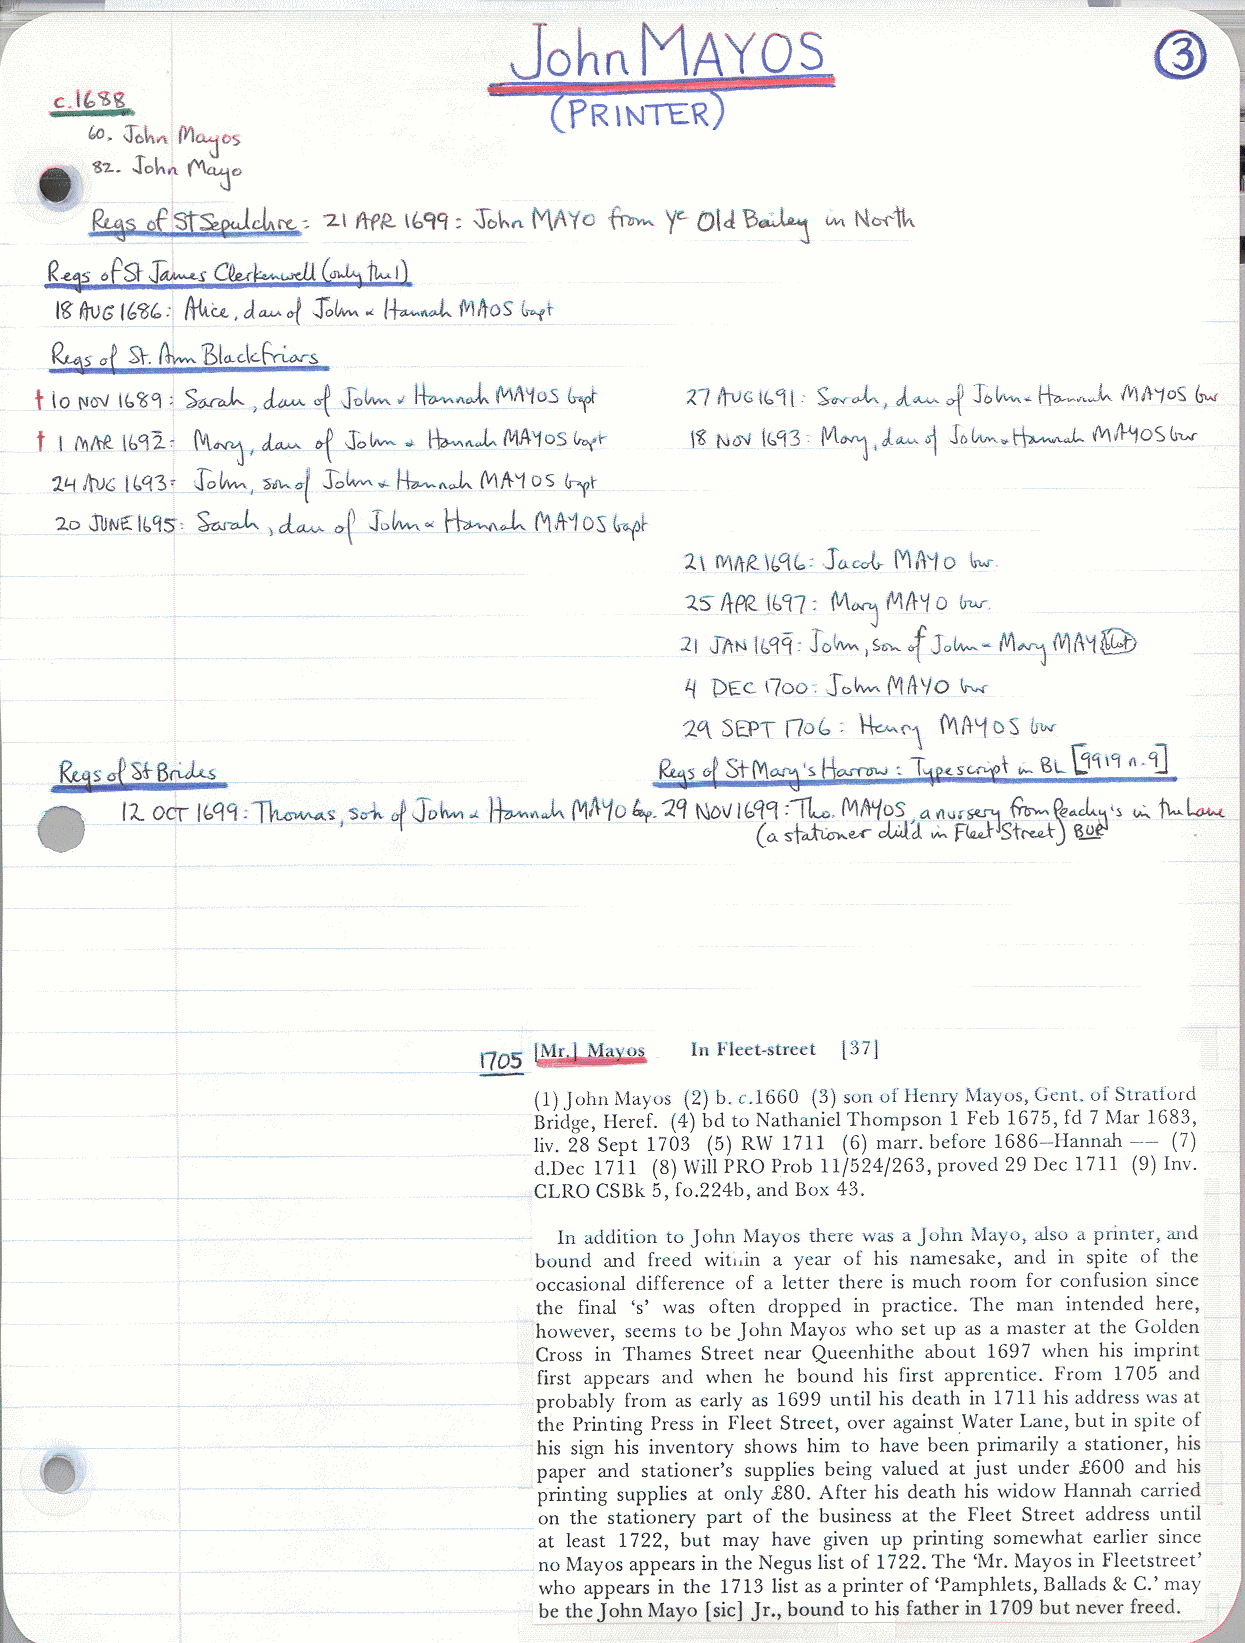 John MAYOS
③
(PRINTER)
c.1688
60. John Mayos
82. John Mayo
Regs of St Sepulchre: 21 APR 1699: John MAYO from ye Old Bailey in North
Regs of St James Clerkenwell (only the 1)
18 AUG 1686: Alice, dau of John & Hannah MAOS bapt
Regs of St. Ann Blackfriars
† 10 NOV 1689: Sarah, dau of John & Hannah MAYOS bapt
27 AUG 1691: Sarah, dau of John & Hannah MAYOS bur
† 1 MAR 1692: Mary, dau of John & Hannah MAYOS bapt
18 NOV 1693: Mary, dau of John & Hannah MAYOS bur
24 AUG 1693: John, son of John & Hannah MAYOS bapt
20 JUNE 1695: Sarah, dau of John & Hannah MAYOS bapt
21 MAR 1696: Jacob MAYO bur.
25 APR 1697: Mary MAYO bur.
21 JAN 1699: John, son of John & Mary MAY[blot]
4 DEC 1700: John MAYO bur
29 SEPT 1706: Henry MAYOS bur
Regs of St Brides
Regs of St Mary's Harrow: Typescript in BL [9919 n.9]
12 OCT 1699: Thomas, son of John & Hannah MAYO bap.
29 NOV 1699: Tho. MAYOS, a nursery from Peachy's in the Lane
(a stationer child in Fleet Street) BUR
1705
[Mr.] Mayos In Fleet-street [37]
(1) John Mayos (2) b. c.1660 (3) son of Henry Mayos, Gent. of Stratford
Bridge, Heref. (4) bd to Nathaniel Thompson 1 Feb 1675, fd 7 Mar 1683,
liv. 28 Sept 1703 (5) RW 1711 (6) marr. before 1686—Hannah —— (7)
d.Dec 1711 (8) Will PRO Prob 11/524/263, proved 29 Dec 1711 (9) Inv.
CLRO CSBk 5, fo.224b, and Box 43.
In addition to John Mayos there was a John Mayo, also a printer, and
bound and freed within a year of his namesake, and in spite of the
occasional difference of a letter there is much room for confusion since
the final ‘s’ was often dropped in practice. The man intended here,
however, seems to be John Mayos who set up as a master at the Golden
Cross in Thames Street near Queenhithe about 1697 when his imprint
first appears and when he bound his first apprentice. From 1705 and
probably from as early as 1699 until his death in 1711 his address was at
the Printing Press in Fleet Street, over against Water Lane, but in spite of
his sign his inventory shows him to have been primarily a stationer, his
paper and stationer's supplies being valued at just under £600 and his
printing supplies at only £80. After his death his widow Hannah carried
on the stationery part of the business at the Fleet Street address until
at least 1722, but may have given up printing somewhat earlier since
no Mayos appears in the Negus list of 1722. The ‘Mr. Mayos in Fleetstreet’
who appears in the 1713 list as a printer of ‘Pamphlets, Ballads & C.’ may
be the John Mayo [sic] Jr., bound to his father in 1709 but never freed.